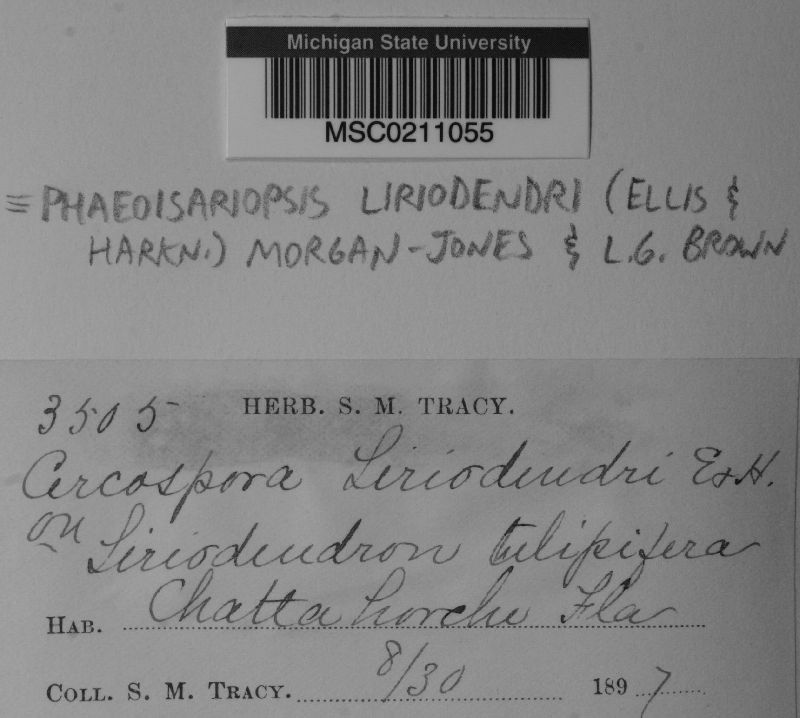 Michigan State University
MSC0211055
≡ PHAEOISARIOPSIS LIRIODENDRI (ELLIS &
HARKN.) MORGAN-JONES & L.G. BROWN
3505 HERB. S. M. TRACY.
Cercospora Liriodendri E&H.
on Liriodendron tulipifera
HAB. Chattahooche Fla
COLL. S. M. TRACY. 8/30 1897